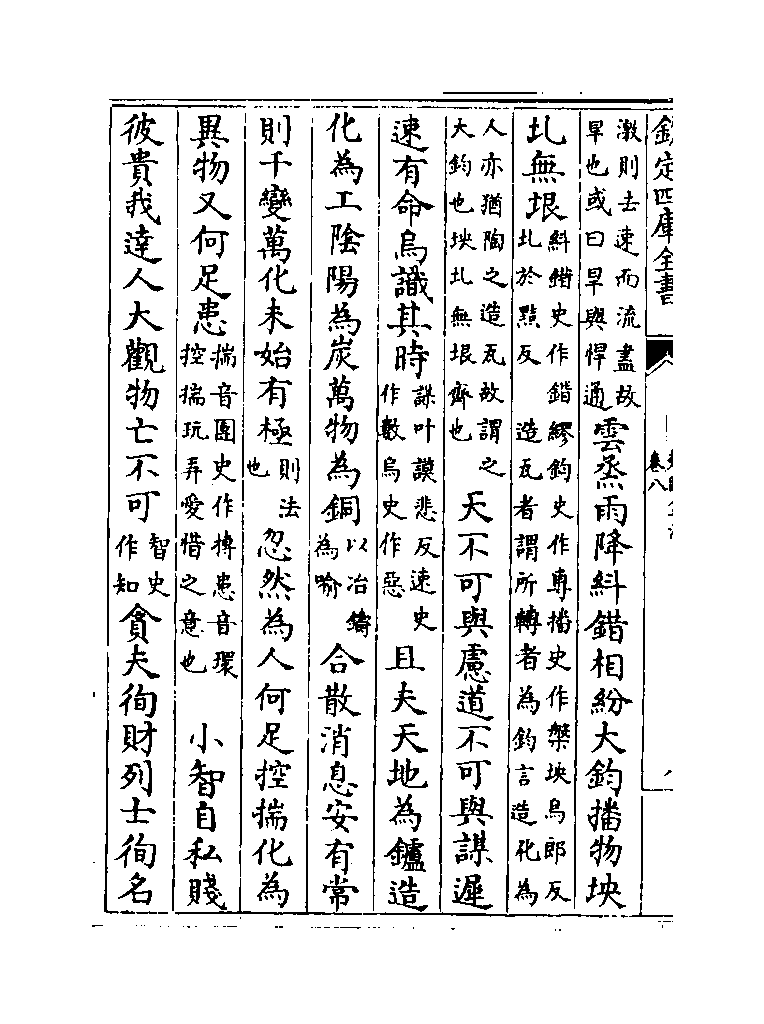 欽定四庫全書
卷八
激則去速而流盡故旱也或曰旱與悍通雲烝雨降糾錯相紛大鈞播物坱
圠無垠糾錯史作錯繆鈞史作專播史作槃坱烏郎反圠於黠反 造瓦者謂所轉者為鈞言造化為
人亦猶陶之造瓦故謂之大鈞也坱圠無垠齊也 天不可與慮道不可與謀遲
速有命烏識其時謀叶謨悲反速史作數烏史作惡 且夫天地為鑪造
化為工陰陽為炭萬物為銅以冶鑄為喻 合散消息安有常
則千變萬化未始有極則法也 忽然為人何足控揣化為
異物又何足患揣音團史作摶患音環控揣玩弄愛惜之意也 小智自私賤
彼貴我達人大觀物亡不可智史作知貪夫徇財列士徇名